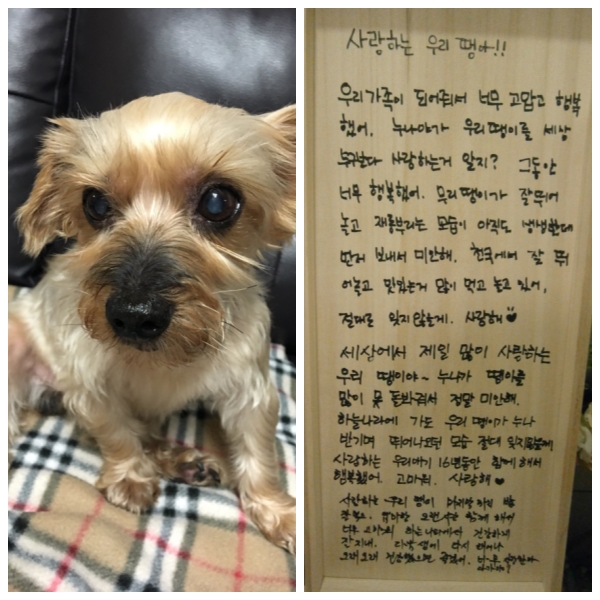 사랑하는 우리 땡아!!
우리가족이 되어줘서 너무 고맙고 행복
했어. 누나야가 우리땡이를 세상
누구보다 사랑하는거 알지? 그동안
너무 행복했어. 우리땡이가 잘뛰어
놀고 재롱부리는 모습이 아직도 생생한데
먼저 보내서 미안해. 천국에서 잘 뛰
어놀고 맛있는거 많이 먹고 놀고 있어,
절대로 잊지않을게. 사랑해♥
세상에서 제일 많이 사랑하는
우리 땡이야~ 누나가 땡이를
많이 못 돌봐줘서 정말 미안해.
하늘나라에 가도 우리 땡이가 누나
반기며 뛰어나오던 모습 절대 잊지못할게
사랑하는 우리애기 16년동안 함께 해줘서
행복했어. 고마워. 사랑해♥
사랑하는 우리 땡이
오래오래